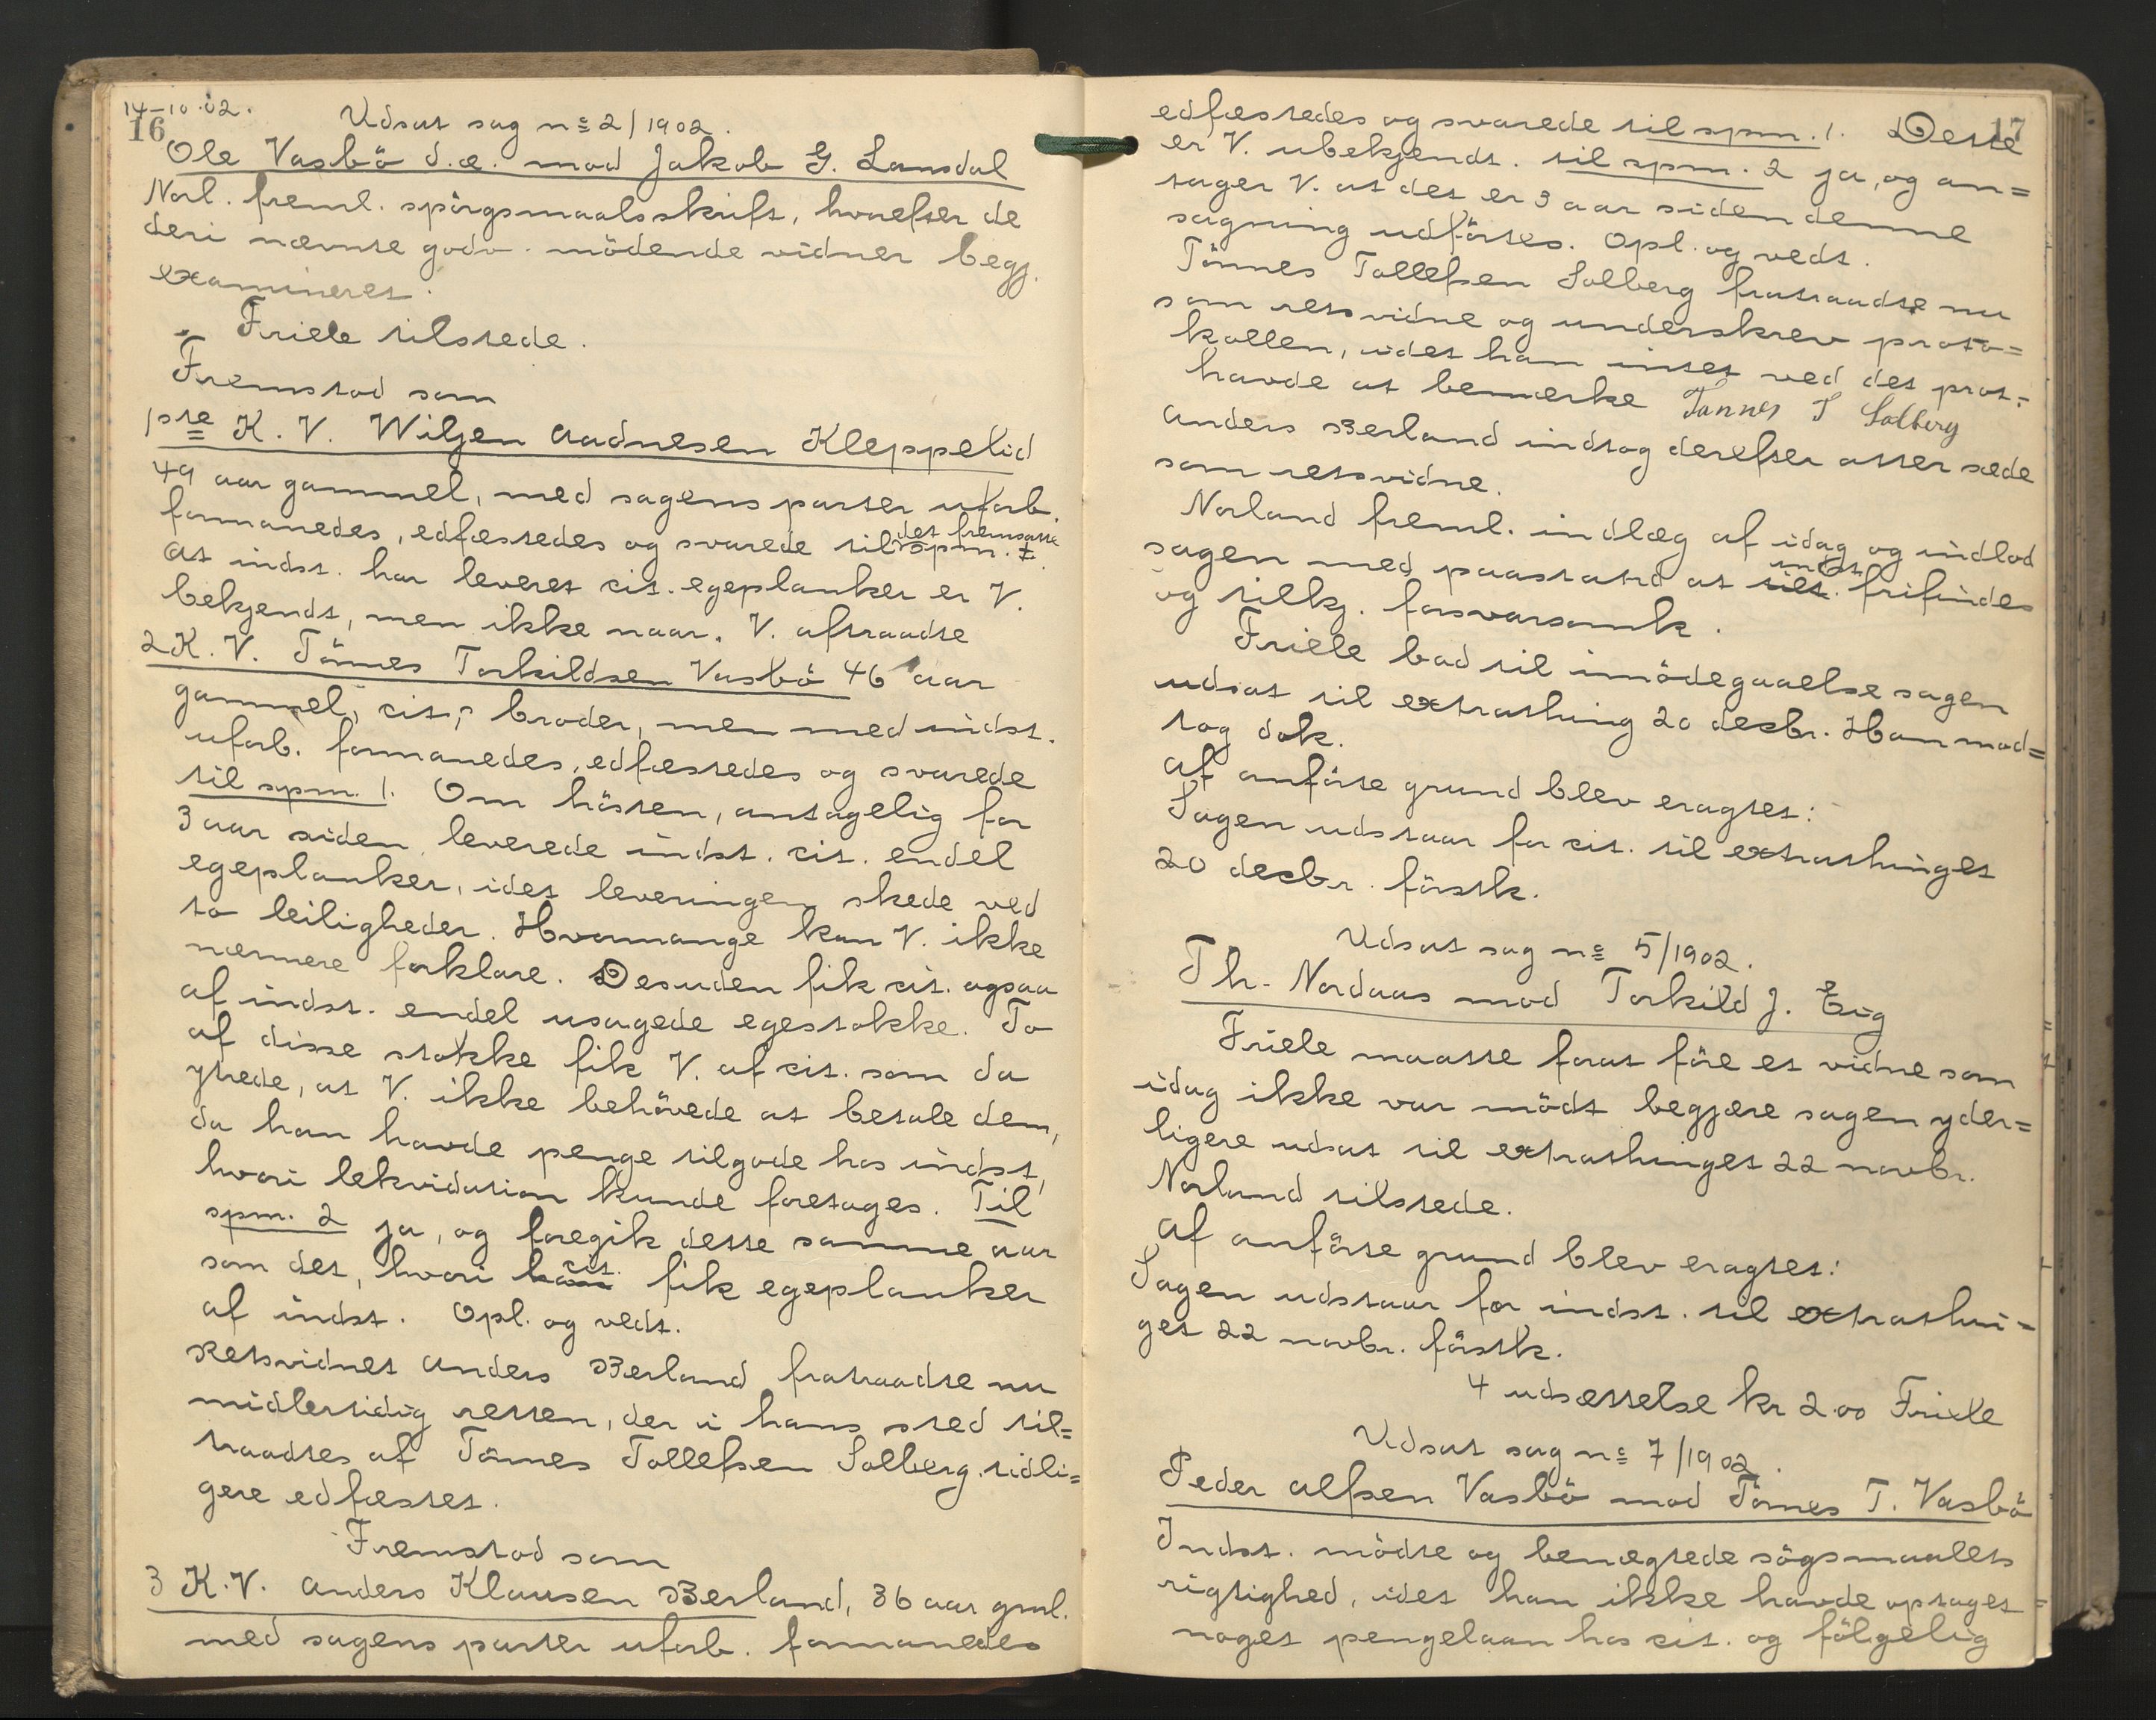 14-10-02.
16
Udsat sag no 2/1902.
Ole Vasbö d.æ. mod Jakob G. Lansdal
Norl. freml. spörgsmaalsskrift, hvorefter de
deri nævnte godv. mödende vidner begj.
examineret.
Friele tilstede.
Fremstod som
1ste K. V. Wiljen Aadnesen Kleppelid
49 aar gammel, med sagens parter uforb.
formanedes, edfæstedes og svarede til det fremsatte spm. 1.
At indst. har leveret cit. egeplanker er V.
bekjendt, men ikke naar. V. aftraadte
2 K. V. Tönnes Torkildsen Vasbö 46 aar
gammel, cit.s broder, men med indst.
uforb. formanedes, edfæstedes og svarede
til spm. 1. Om hösten, antagelig for
3 aar siden leverede indst. cit. endel
egeplanker, idet leveringen skede ved
to leiligheder. Hvormange kan V. ikke
nærmere forklare. Desuden fik cit. ogsaa
af indst. endel usagede egestokke. To
af disse stokke fik V. af cit. som da
ytrede, at V. ikke behövede at betale dem,
da han havde penge tilgode hos indst,
hvori lekvidation kunde foretages. Til
spm. 2 ja, og foregik dette samme aar
som det, hvori han cit. fik egeplanker
af indst. Opl. og vedt.
Retsvidnet Anders Berland fratraadte nu
midlertidig retten, der i hans sted til=
traadtes af Tönnes Tollefsen Solberg, tidli=
gere edfæstet.
Fremstod som
3 K.V. Anders Klausen Berland, 36 aar gml.
med sagens parter uforb. formanedes
17
edfæstedes og svarede til spm. 1. Dette
er V. ubekjendt. til spm. 2 ja, og an=
tager V. at det er 3 aar siden denne
sagning udförtes. Opl. og vedt.
Tönnes Tollefsen Solberg fratraadte nu
som retsvidne og underskrev proto=
kollen, idet han intet ved det prot.
havde at bemærke Tønnes T Solberg
Anders Berland indtog derefter atter sæde
som retsvidne.
Norland freml. indlæg af idag og indlod
sagen med paastand at tilt. indst. frifindes
og tilkj. forsvarsomk.
Friele bad til imödegaaelse sagen
udsat til extrathing 20 decbr. Han mod=
tog dok.
Af anförte grund blev eragtet:
Sagen udstaar for cit. til extrathinget
20 decbr. förstk.
Udsat sag no 5/1902.
Th. Nordaas mod Torkild J. Eig
Friele maatte forat före et vidne som
idag ikke var mödt begjære sagen yder=
ligere udsat til extrathinget 22 novbr.
Norland tilstede.
Af anförte grund blev eragtet:
Sagen udstaar for indst. til extrathin=
get 22 novbr. förstk.
4 udsættelse kr 2.00 Friele
Udsat sag no 7/1902.
Peder Alfsen Vasbö mod Tönnes T. Vasbö
Indst. mödte og benægtede sögsmaalets
rigtighed, idet han ikke havde optaget
noget pengelaan hos cit. og fölgelig